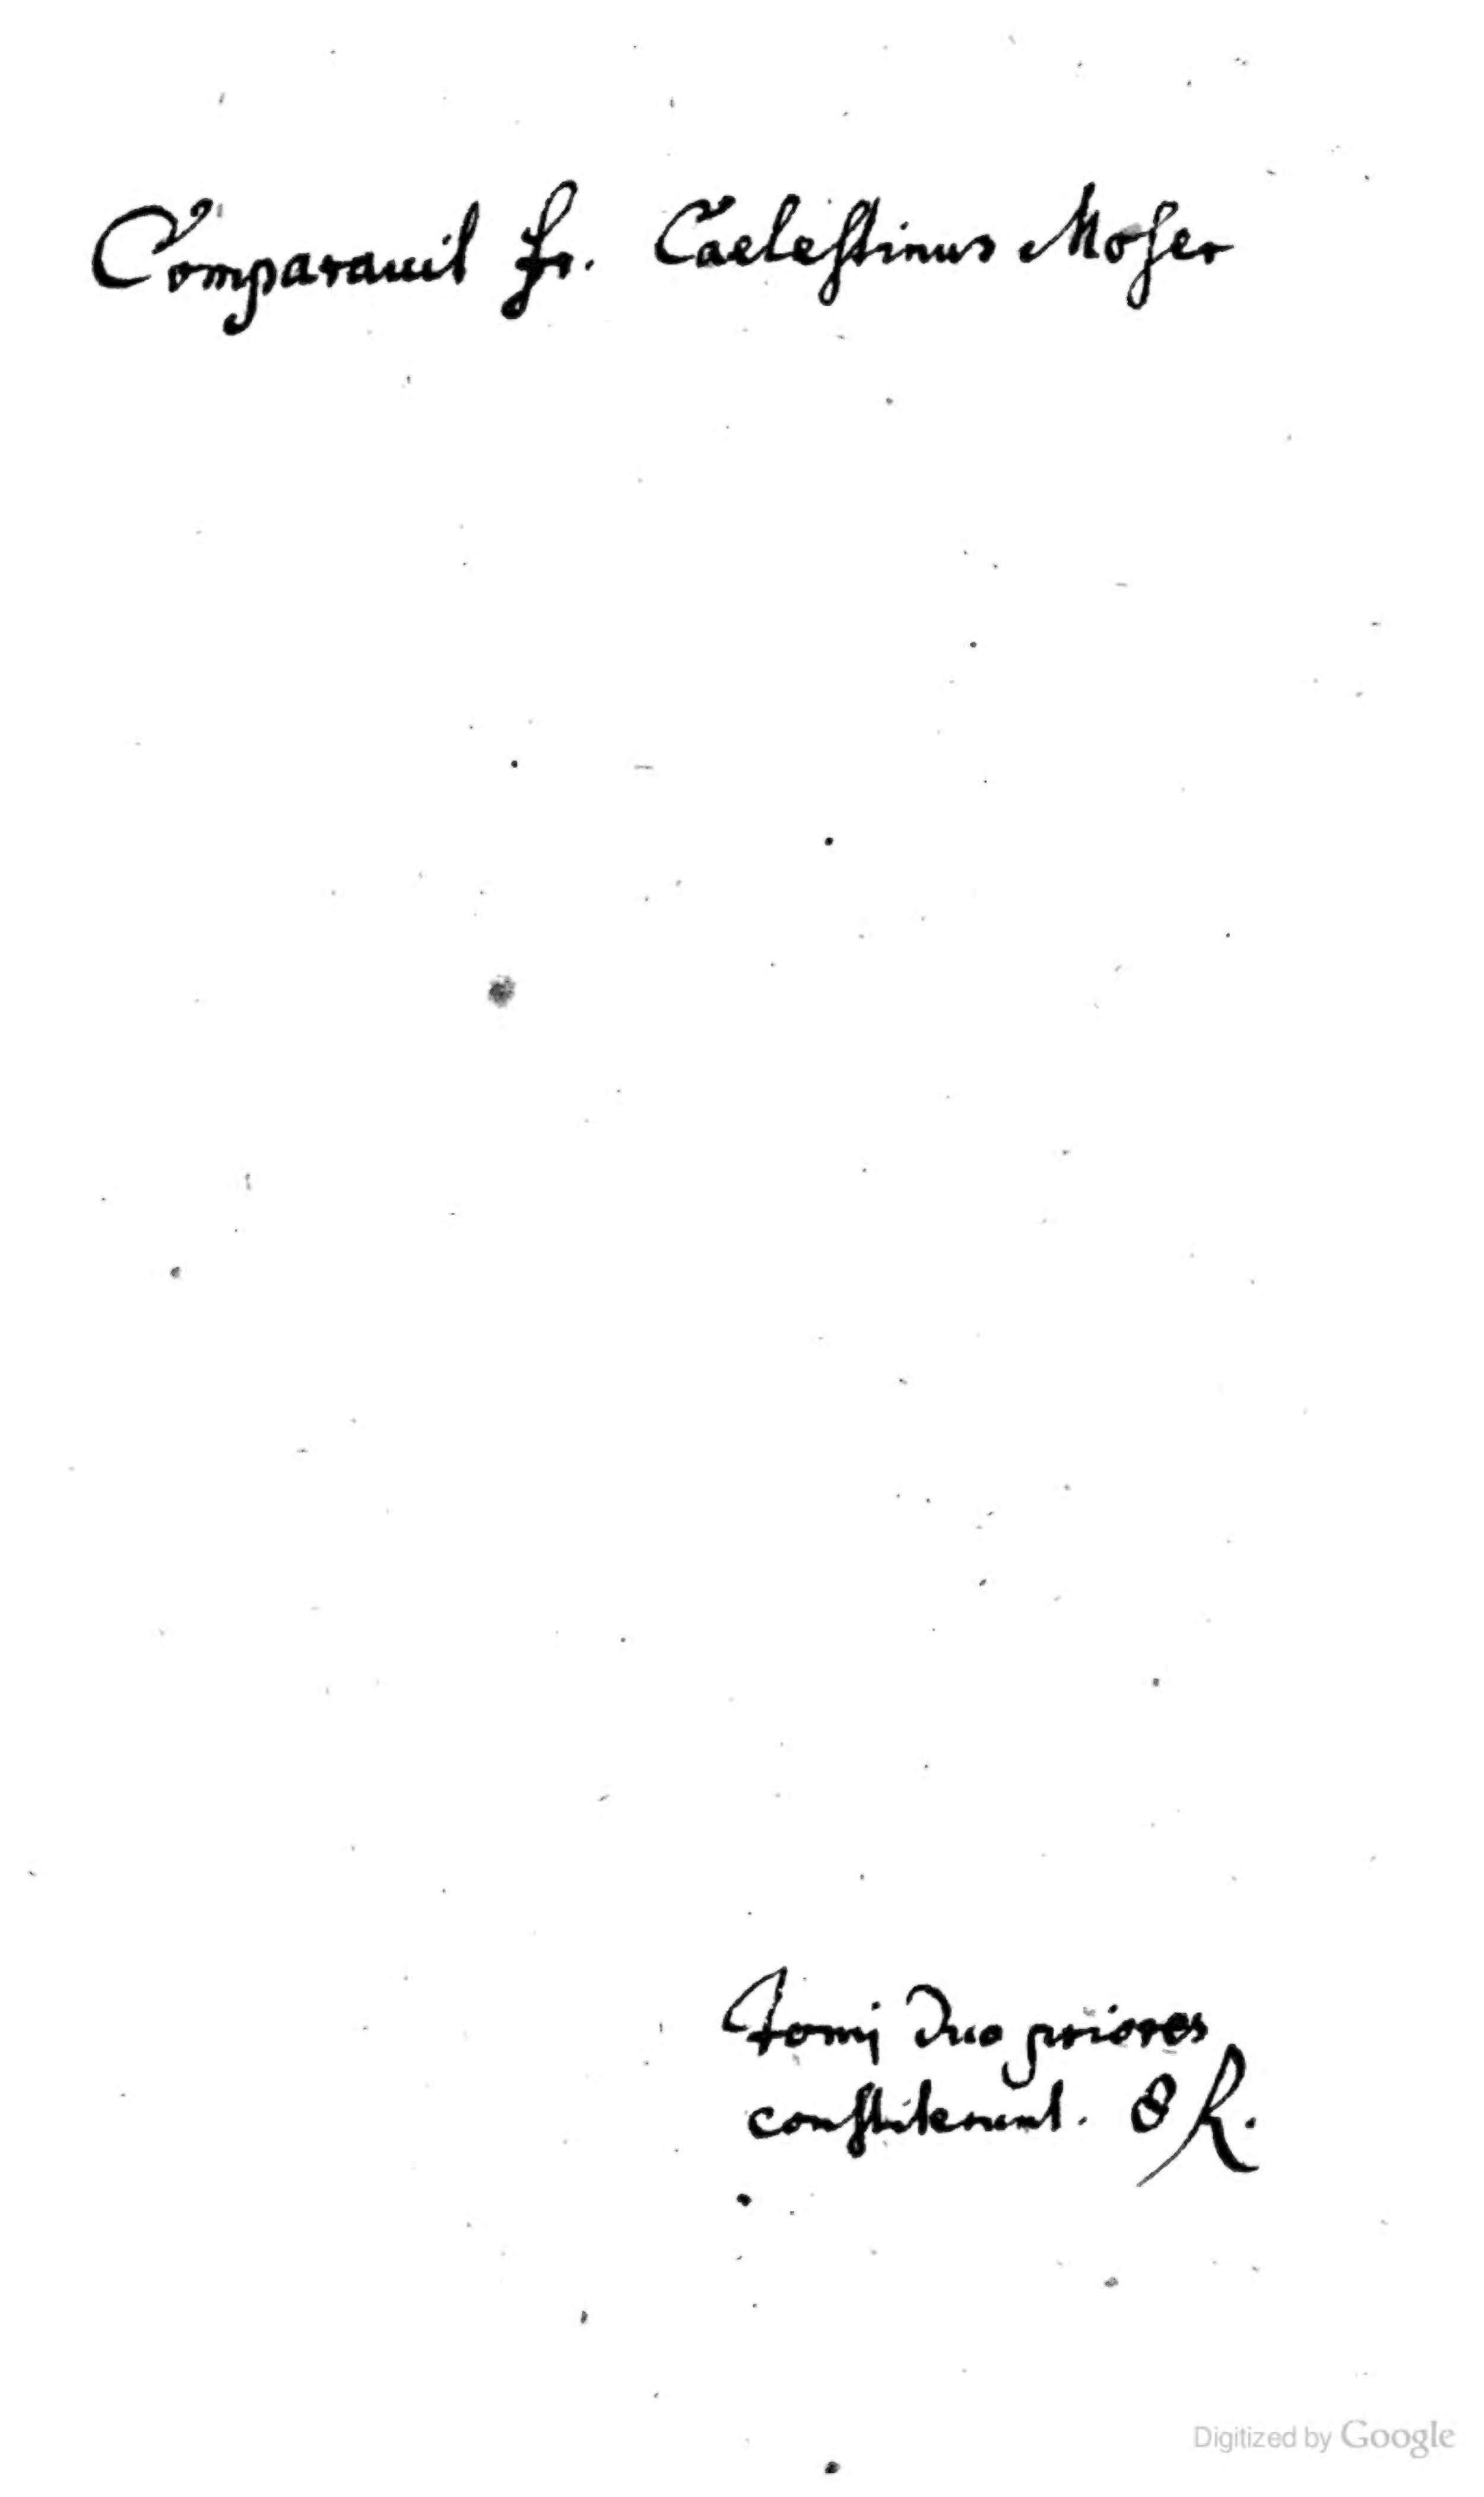 Comparauit fr. Caelestinus Moser
tomj duo priores
constiterunt. 8 R.
Digitized by Google